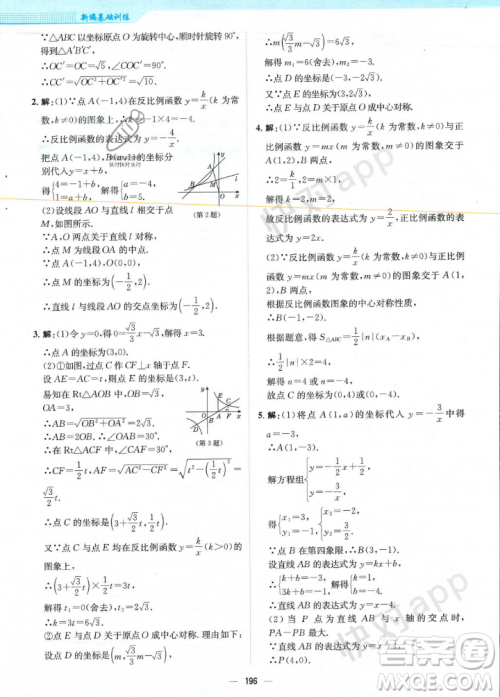 新编基础训练
∵△ABC以坐标原点O为旋转中心，顺时针旋转90°，
得到△A'B'C'，
∴OC'=OC=√5，∠COC'=90°，
∴CC'=√(OC²+OC'²)=√10.
2.解：(1)∵点A(-1,4)在反比例函数y=k/x(k为常数，
k≠0)的图象上，∴k=-1×4=-4，
∴反比例函数的表达式为y=-4/x.
把点A(-1,4)的坐标分
别代入y=
得
解得
(2)设线段AO与直线l相交于点
M，如图所示.
(第2题)
∵A，O两点关于直线l对称，
∴点M为线段OA的中点.
∵点A(-1,4)，O(0,0)，
∴点M的坐标为(-1/2,2)，
∴直线l与线段AO的交点坐标为(-1/2,2).
3.解：(1)令y=0，得0=√3/3x-√3，解得x=3，
∴点A的坐标为(3,0).
(2)①如图，过点C作CF⊥x轴于点F.
设AE=AC=t，则点E的坐标是(3,t).
易知在Rt△AOB中，OB=√3，
OA=3，
∴AB=√(OB²+OA²)=2√3，
∴∠OAB=30°.
(第3题)
∵在Rt△ACF中，∠CAF=30°，
∴CF=1/2t，AF=√(AC²-CF²)=√(t²-(1/2t)²)
=√3/2t，
∴点C的坐标是(3+√3/2t,1/2t).
又∵点C与点E均在反比例函数y=k/x(k>0)的
图象上，
∴(3+√3/2t)×1/2t=3t，
解得t₁=0(舍去)，t₂=2√3，
∴k=3t=6√3.
②点E与点D关于原点O成中心对称.理由如下：
设点D的坐标是(m,√3/3m-√3)，
∴m(√3/3m-√3)=6√3，
解得m₁=6(舍去)，m₂=-3，
∴点D的坐标为(-3,-2√3).
∵点E的坐标为(3,2√3)，
∴点E与点D关于原点O成中心对称.
4.解：(1)∵反比例函数y=k/x(k为常数，k≠0)与正比
例函数y=mx(m为常数，m≠0)的图象交于
A(1,2)，B两点，
∴2=k/1，2=m×1，
解得k=2，m=2，
故反比例函数的表达式为y=2/x，正比例函数的表达
式为y=2x.
(2)∵反比例函数y=k/x(k为常数，k≠0)与正比例
函数y=mx(m为常数，m≠0)的图象交于点
A(1,2)，B两点，
根据反比例函数图象的中心对称性质，
∴B(-1,-2).
设点C(0,n)，
根据题意，得S△ABC=1/2|n|(xA-xB)，
∴1/2|n|×2=4，
解得n=4或n=-4，
∴点C的坐标为(0,4)或(0,-4).
5.解：(1)将点A(1,a)的坐标代入y=-3/x中得
a=-3，
∴A(1,-3).
解方程组{y=-3/x，y=-1/2x+1/2，
得
∵点B在第四象限，∴B(3,-1).
设直线AB的表达式为y=kx+b，
则
解得
∴直线AB的表达式为y=x-4.
(2)当P点为直线AB与x轴的交点时，
PA-PB最大.
∴P(4,0).
196
快对app
快对app
作业精灵